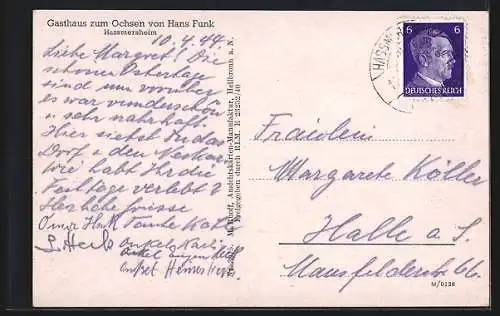 Gasthaus zum Ochsen von Hans Funk
Hassmersheim
10.4.44.
Liebe Margret! Die
schönen Ostertage
sind nun vorüber
es war wunderschön
u. sehr nahrhaft.
Hier siehst Du das
Dorf u. den Neckar
Wie habt Ihr die
Festtage verlebt?
Herzliche Grüsse
Oma Tante
Onkel Karl
Onkel
Onkel Heiner
Metz, Ansichtskarten-Manufaktur, Heilbronn a. N.
Freigegeben durch RLM.
HASSM
6 6
DEUTSCHES REICH
Fräulein
Margarete Köller
Halle a. S.
Mansfelderstr. 66.
M/0138